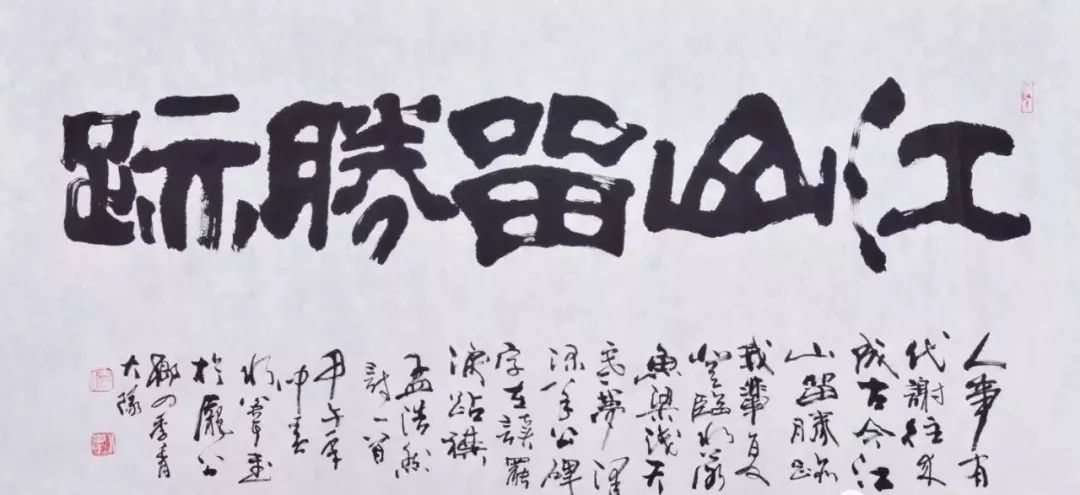 江山留勝跡
人事有
代謝往来
成古今江
山留勝跡
我輩復
登臨水落
魚梁淺天
寒夢澤
深羊公碑
字在讀罷
淚沾襟
孟浩然
詩一首
甲午年
中春
於龐公
鄉四季青
大隊